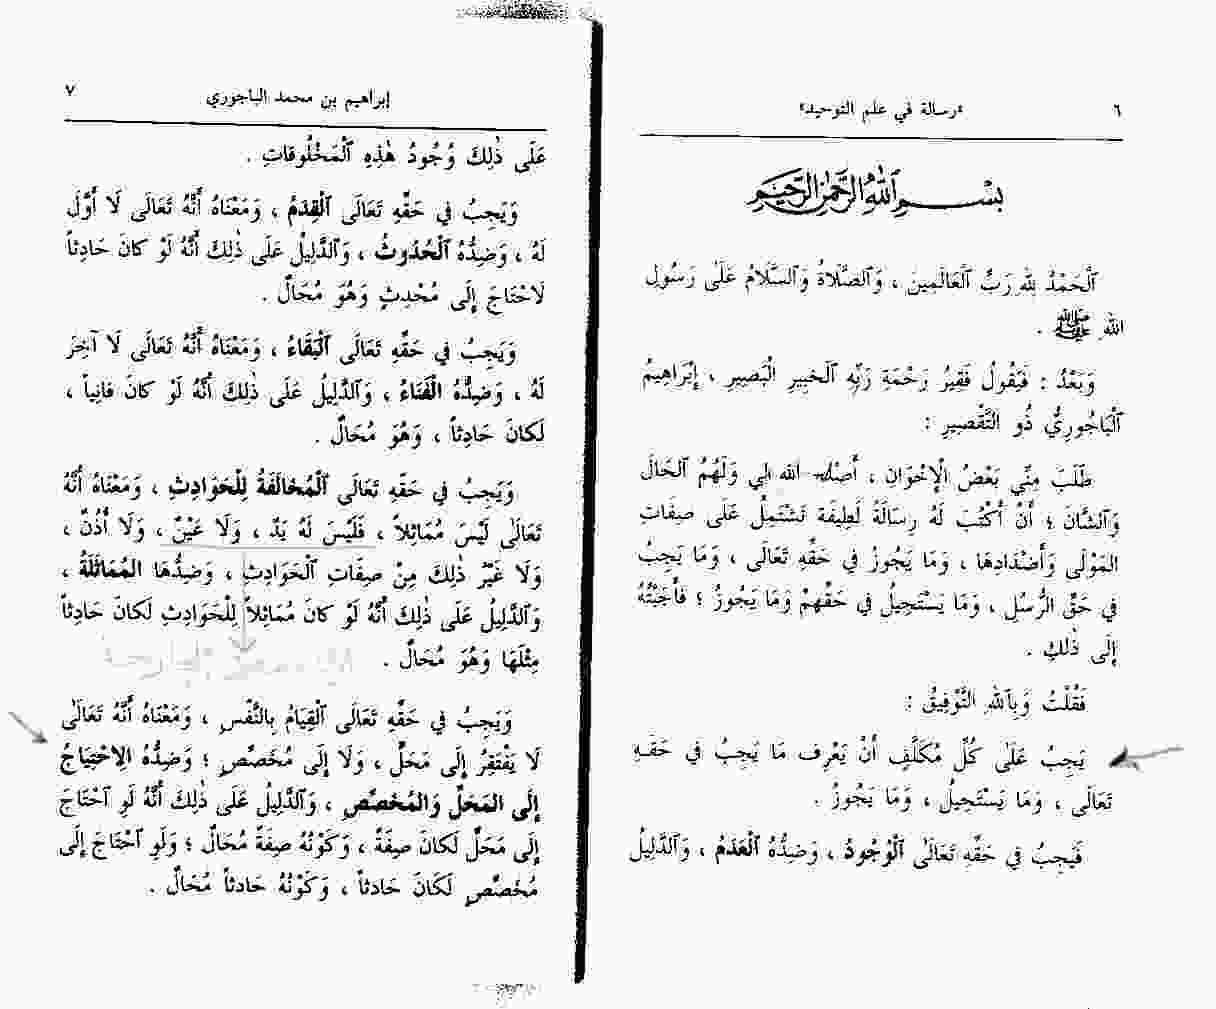 ٦
«رسالة في علم التوحيد»
بِسْمِ ٱللَّهِ ٱلرَّحْمٰنِ ٱلرَّحِيمِ
ٱلْحَمْدُ لِلَّهِ رَبِّ ٱلْعَالَمِينَ ، وَٱلصَّلَاةُ وَٱلسَّلَامُ عَلَىٰ رَسُولِ
ٱللهِ ﷺ .
وَبَعْدُ : فَيَقُولُ فَقِيرُ رَحْمَةِ رَبِّهِ ٱلْخَبِيرِ ٱلْبَصِيرِ ، إِبْرَاهِيمُ
ٱلْبَاجُورِيُّ ذُو التَّقْصِيرِ :
طَلَبَ مِنِّي بَعْضُ الْإِخْوَانِ ، أَصْلَحَ ٱللهُ لِي وَلَهُمُ ٱلْحَالَ
وَٱلشَّانَ ؛ أَنْ أَكْتُبَ لَهُ رِسَالَةً لَطِيفَةً تَشْتَمِلُ عَلَى صِفَاتِ
المَوْلَى وَأَضْدَادِهَا ، وَمَا يَجُوزُ فِي حَقِّهِ تَعَالَى ، وَمَا يَجِبُ
فِي حَقِّ الرُّسُلِ ، وَمَا يَسْتَحِيلُ فِي حَقِّهِمْ وَمَا يَجُوزُ ؛ فَأَجَبْتُهُ
إِلَى ذٰلِكَ .
فَقُلْتُ وَبِٱللهِ التَّوْفِيقُ :
يَجِبُ عَلَىٰ كُلِّ مُكَلَّفٍ أَنْ يَعْرِفَ مَا يَجِبُ فِي حَقِّهِ
تَعَالَى ، وَمَا يَسْتَحِيلُ ، وَمَا يَجُوزُ .
فَيَجِبُ فِي حَقِّهِ تَعَالَىٰ ٱلْوُجُودُ ، وَضِدُّهُ ٱلْعَدَمُ ، وَٱلدَّلِيلُ
إبراهيم بن محمد الباجوري
٧
عَلَى ذٰلِكَ وُجُودُ هٰذِهِ ٱلْمَخْلُوقَاتِ .
وَيَجِبُ فِي حَقِّهِ تَعَالَى ٱلْقِدَمُ ، وَمَعْنَاهُ أَنَّهُ تَعَالَى لَا أَوَّلَ
لَهُ ، وَضِدُّهُ ٱلْحُدُوثُ ، وَٱلدَّلِيلُ عَلَى ذٰلِكَ أَنَّهُ لَوْ كَانَ حَادِثاً
لَاحْتَاجَ إِلَى مُحْدِثٍ وَهُوَ مُحَالٌ .
وَيَجِبُ فِي حَقِّهِ تَعَالَى ٱلْبَقَاءُ ، وَمَعْنَاهُ أَنَّهُ تَعَالَى لَا آخِرَ
لَهُ ، وَضِدُّهُ الْفَنَاءُ ، وَالدَّلِيلُ عَلَى ذٰلِكَ أَنَّهُ لَوْ كَانَ فَانِياً ،
لَكَانَ حَادِثاً ، وَهُوَ مُحَالٌ .
وَيَجِبُ فِي حَقِّهِ تَعَالَى ٱلْمُخَالَفَةُ لِلْحَوَادِثِ ، وَمَعْنَاهُ أَنَّهُ
تَعَالَىٰ لَيْسَ مُمَاثِلاً ، فَلَيْسَ لَهُ يَدٌ ، وَلَا عَيْنٌ ، وَلَا أُذُنٌ ،
وَلَا غَيْرُ ذٰلِكَ مِنْ صِفَاتِ ٱلْحَوَادِثِ ، وَضِدُّهَا المُمَاثَلَةُ ،
وَٱلدَّلِيلُ عَلَى ذٰلِكَ أَنَّهُ لَوْ كَانَ مُمَاثِلاً لِلْحَوَادِثِ لَكَانَ حَادِثاً
مِثْلَهَا وَهُوَ مُحَالٌ .
وَيَجِبُ فِي حَقِّهِ تَعَالَى ٱلْقِيَامُ بِالنَّفْسِ ، وَمَعْنَاهُ أَنَّهُ تَعَالَىٰ
لَا يَفْتَقِرُ إِلَى مَحَلٍّ ، وَلَا إِلَى مُخَصِّصٍ ؛ وَضِدُّهُ الِاحْتِيَاجُ
إِلَى المَحَلِّ وَالمُخَصِّصِ ، وَالدَّلِيلُ عَلَى ذٰلِكَ أَنَّهُ لَوِ ٱحْتَاجَ
إِلَى مَحَلٍّ لَكَانَ صِفَةً ، وَكَوْنُهُ صِفَةً مُحَالٌ ؛ وَلَوِ ٱحْتَاجَ إِلَى
مُخَصِّصٍ لَكَانَ حَادِثاً ، وَكَوْنُهُ حَادِثاً مُحَالٌ .